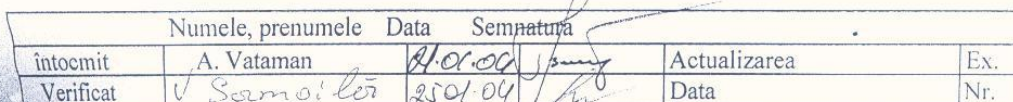 Numele, prenumele Data Semnatura
întocmit A. Vataman Actualizarea Ex.
Verificat V Samoilă 25 01 04 Data Nr.